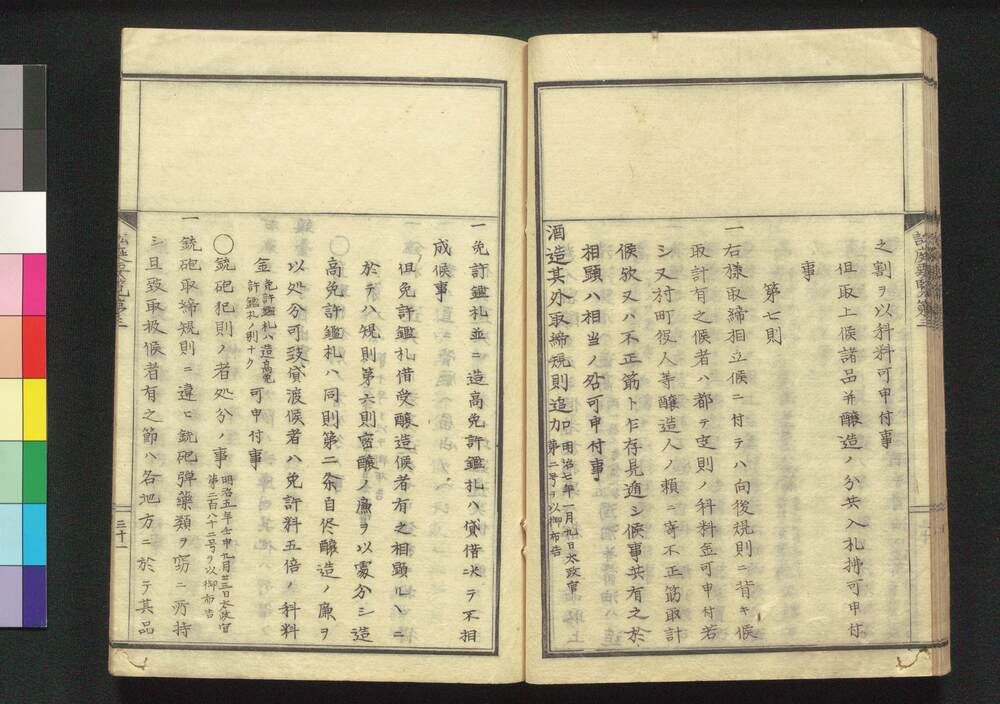 之割ヲ以科料可申付事
但取上候諸品并醸造ノ分共入札拂可申付
事
第七則
一右様取締相立候ニ付テハ向後規則ニ背キ候
取計有之候者ハ都テ定則ノ科料金可申付若
シ又村町役人等醸造人ノ頼ニ寄不正筋取計
候欤又ハ不正筋ト乍存見逃シ候事共有之於
相顕ハ相当ノ咎可申付事
酒造其外取締規則追加 明治七年一月九日太政官
第二号ヲ以御布告
一免許鑑札並ニ造高免許鑑札ハ貸借決テ不相
成候事
但免許鑑札借受醸造候者有之相顕ルヽニ
於テハ規則第六則密醸ノ廉ヲ以處分シ造
高免許鑑札ハ同則第二条自侭醸造ノ廉ヲ
以処分可致貸渡候者ハ免許料五倍ノ科料
金 免許鑑札ハ造高免
許鑑札ノ別ナク 可申付事
○銃砲犯則ノ者処分ノ事 明治五年壬申九月廿三日太政官
第二百八十二号ヲ以御布告
一銃砲取締規則ニ違ヒ銃砲弾藥類ヲ窃ニ所持
シ且致取扱候者有之節ハ各地方ニ於テ其品
三十一